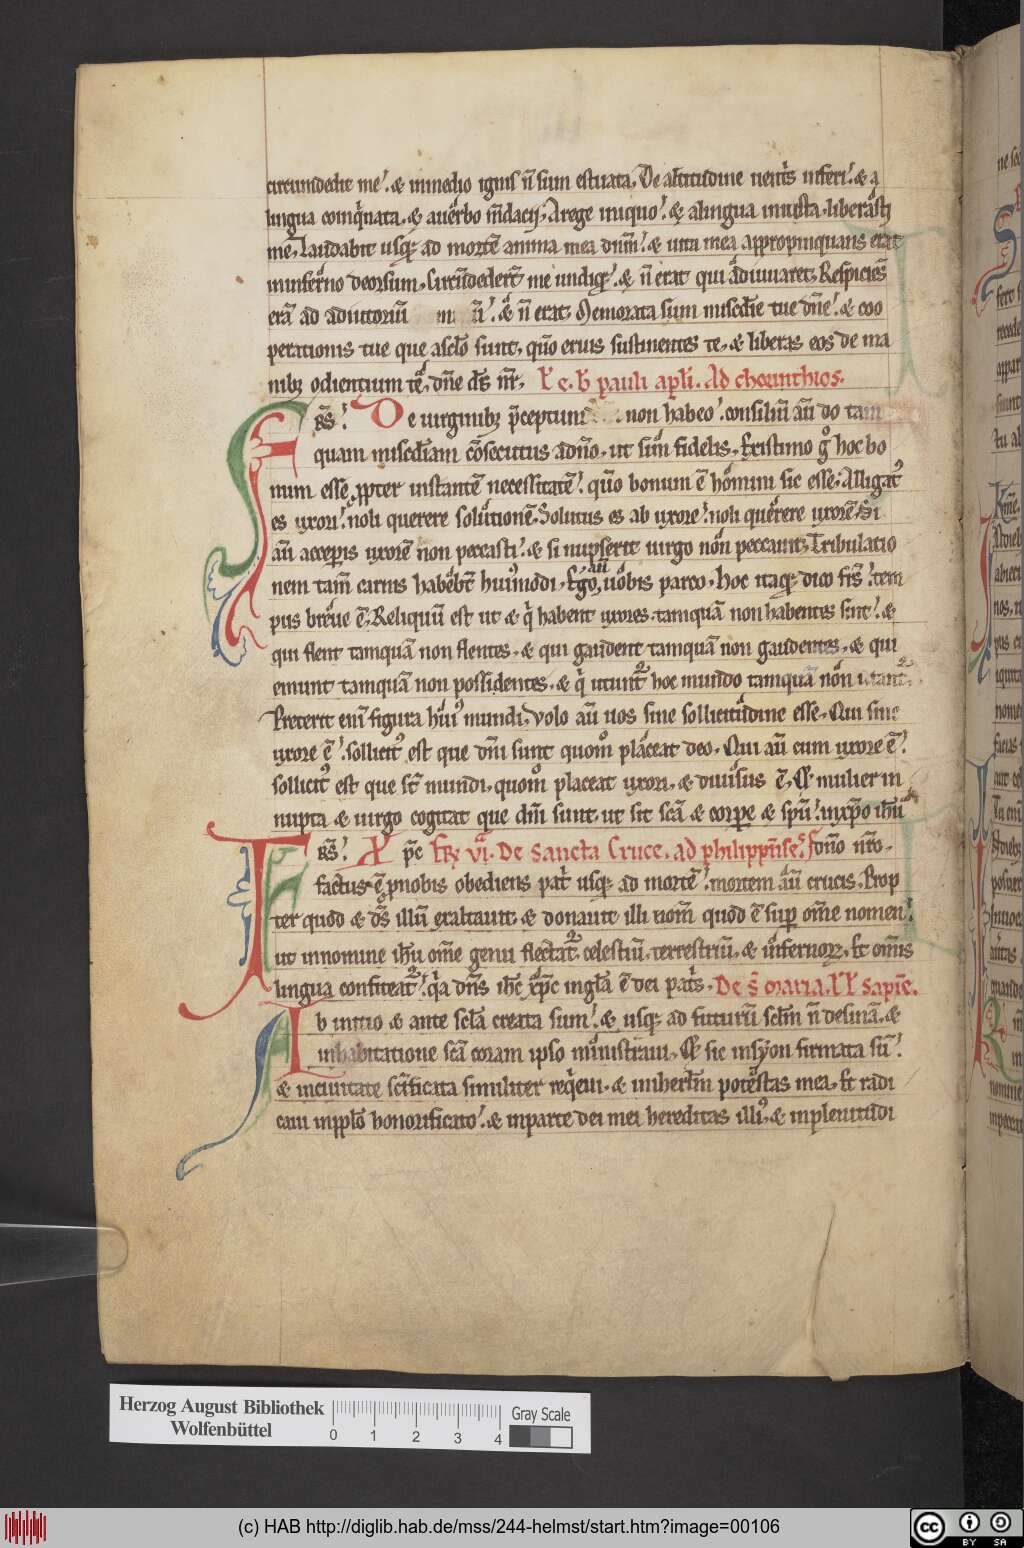 circumdedit me. & inmedio ignis n̄ sum estuata. De altitudine uent͛s inferi. & a
lingua coinq͛nata. & auerbo m̄dacij. A rege iniquo. & alingua iniusta. liberasti
me. Laudabit usq; ad mortē anima mea dnm̄. & uita mea appropinquans erat
ininferno deorsum. Circūdederr̄t me undiq;. & n̄ erat qui adiuuaret. Respiciēs
erā ad adiutoriū & n̄ erat. Memorata sum misc̄die tue dn̄e. & coo
perationis tue que asc̄lo sunt. qūo eruis sustinentes te. & liberas eos de ma
nibꝫ odientium te. dn̄e ds̄ nr̄.
pauli apl̄i. Ad chorinthios.
F rs̄. De uirginibꝫ p̄ceptum non habeo. consiliū aū do tam
quam misc̄diam cōsecutus adn̄o. ut sim fidelis. Existimo g̊ hoc bo
num esse ꝓpter instantē necessitatē. qūo bonum ē homini sic esse. Alligat᷒
es uxori. noli querere solutionē. Solutus es ab uxore. noli querere uxorē. Si
aū acceperis uxorē non peccasti. & si nupserit uirgo non peccauit. Tribulatio
nem tam̄ carnis habebt̄ hui᷒modi. Ego aū uobis parco. Hoc itaq; dico frs̄. tem
pus breue ē. Reliquū est ut & q͛ habent uxores. tamquā non habentes sint. &
qui flent tamquā non flentes. & qui gaudent tamquā non gaudentes. & qui
emunt tamquā non possidentes. & q͛ utunt᷑ hoc mundo tamquā non utant᷑.
Preterit eni figura hui᷒ mundi. Volo aū uos sine sollicitudine esse. Qui sine
uxore ē. sollicit᷒ est que dn̄i sunt quom̊ placeat deo. Qui aū cum uxore ē.
sollicit᷒ est que st̄ mundi. quom̊ placeat uxori. & diuisus ē. & mulier in
nupta & uirgo cogitat que dn̄i sunt. ut sit sc̄a & corpe & spū. inxp̄o ih̄u
F rs̄. Xp̄c
De sancta Cruce. ad philippn̄se. dn̄o nr̄o.
factus ē ꝓnobis obediens pat͛ usq; ad mortē. mortem aū crucis. Prop
ter quod & ds̄ illū exaltauit. & donauit illi nom̄ quod ē sup̄ om̄e nomen.
ut innomine ih̄u om̄e genu flectat᷑. celestiū. terrestriū. & infernoꝝ. Et om̄is
lingua confiteat᷑. q͛a dn̄s ih̄c xp̄c inglā ē dei pat͛s. De s̄ maria. sapiē.
A b initio & ante scl̄a creata sum. & usq; ad futurū scl̄m n̄ desinā. &
inhabitatione sc̄a coram ipso ministraui. & sic insyon firmata sū.
& inciuitate sc̄ificata similiter req͛eui. & inihrl̄m potestas mea. Et radi
caui inpplo honorificato. & inparte dei mei hereditas illi᷒. & inplenitudi
Herzog August Bibliothek
Wolfenbüttel
0 1 2 3 4
Gray Scale
(c) HAB http://diglib.hab.de/mss/244-helmst/start.htm?image=00106
cc BY SA